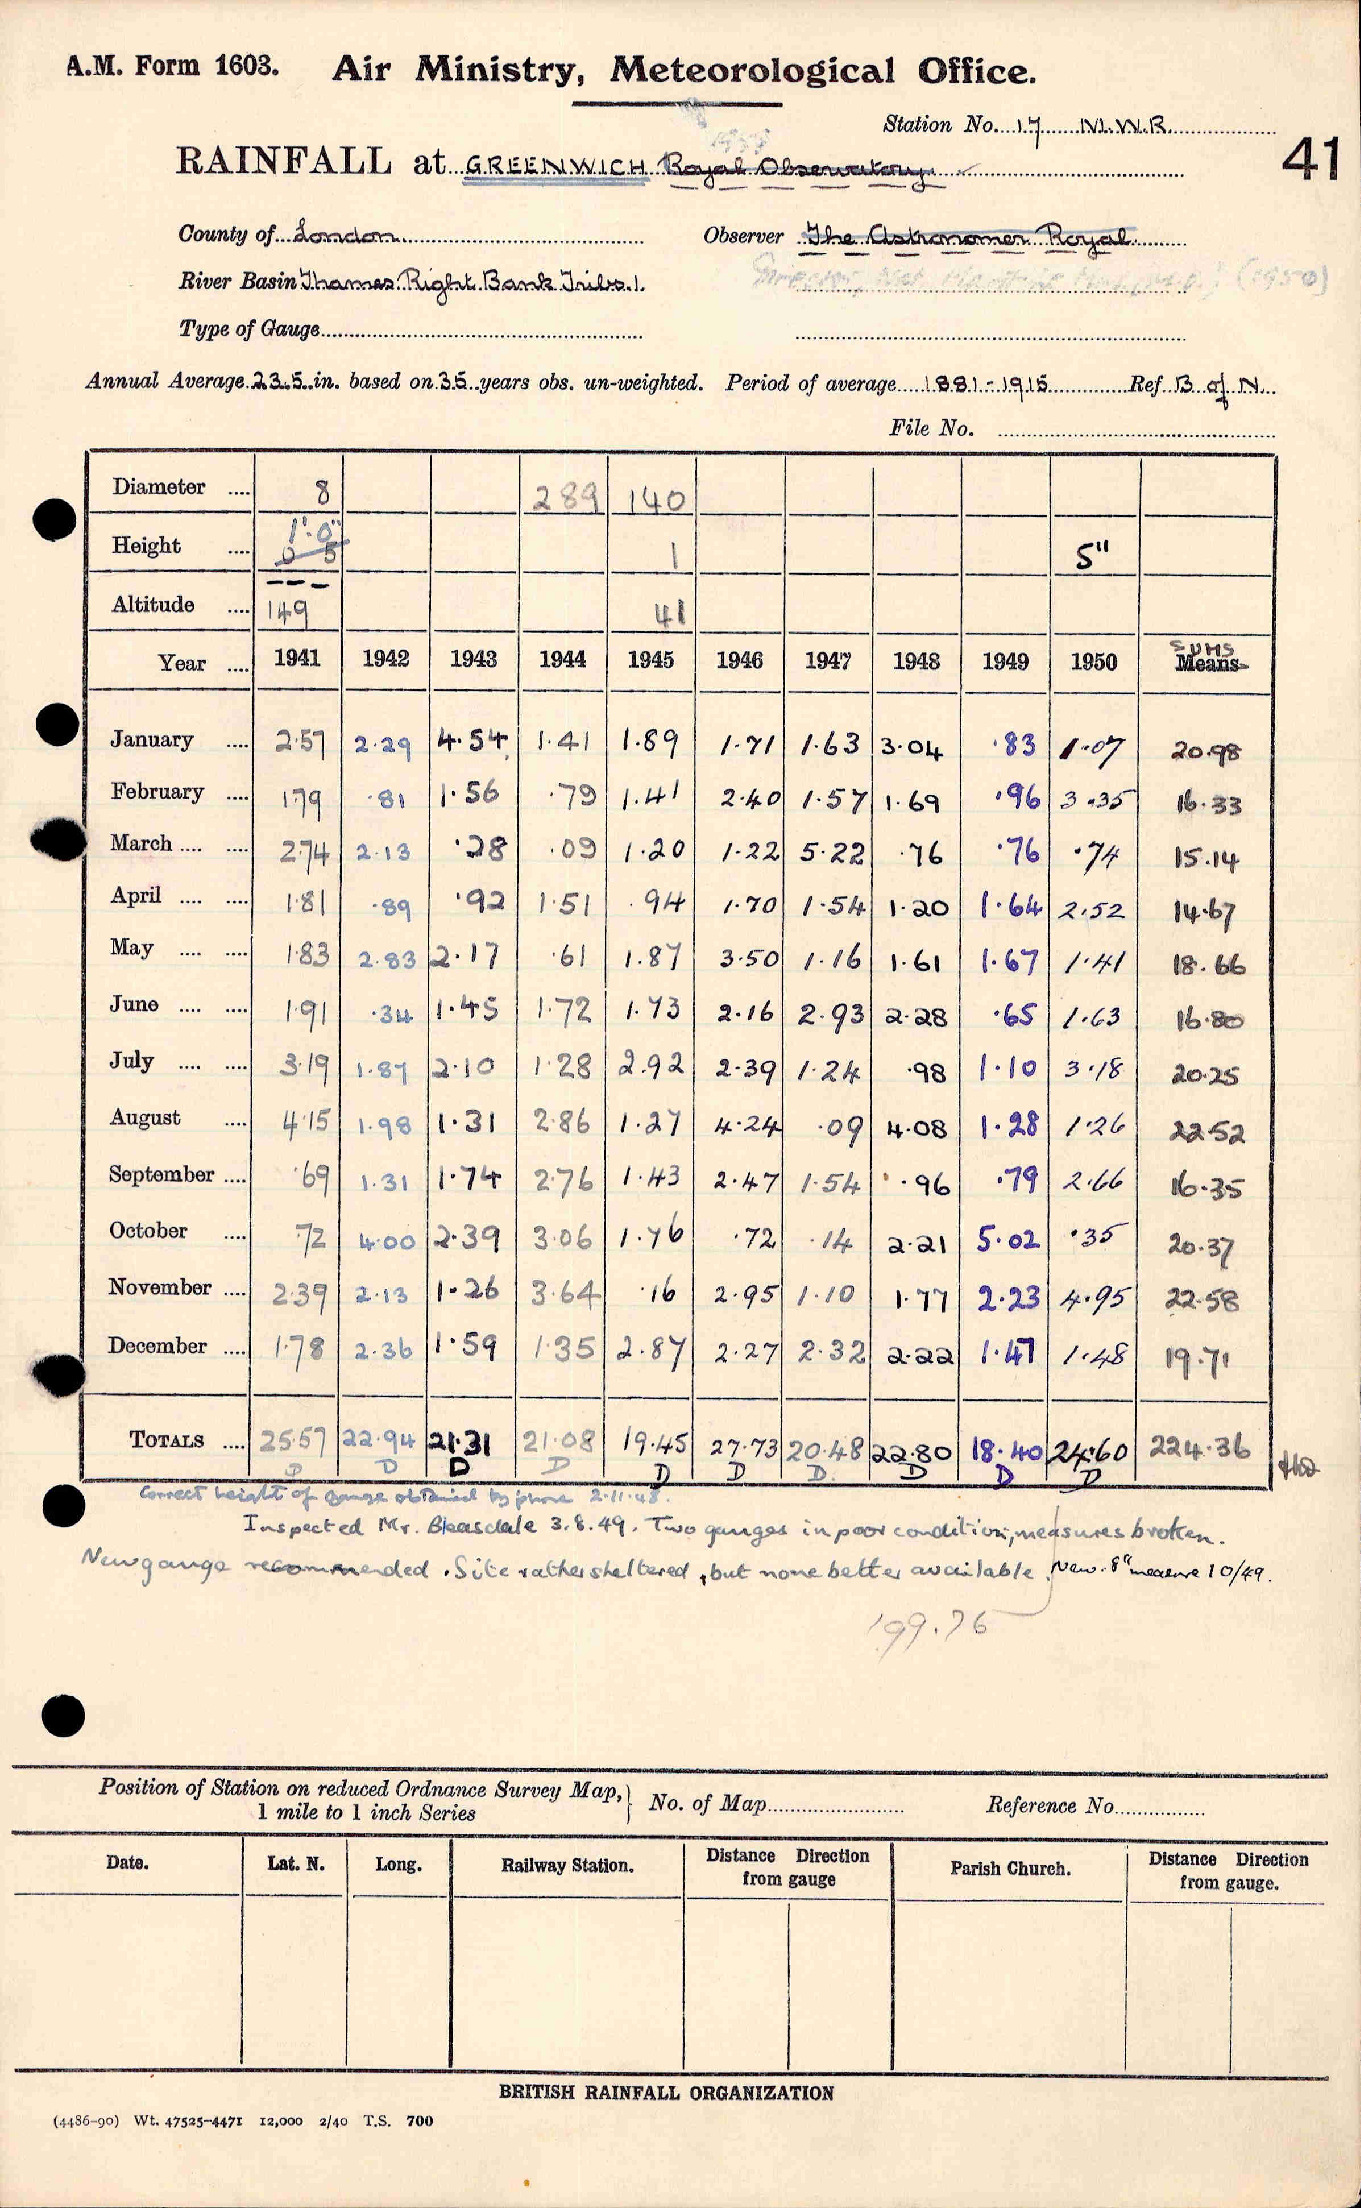 A.M. Form 1603. Air Ministry, Meteorological Office.
Station No. 17 M.W.R.
41
RAINFALL at GREENWICH Royal Observatory.
County of London Observer The Astronomer Royal
River Basin Thames Right Bank Tribs. 1. (1950)
Type of Gauge
Annual Average 23.5 in. based on 35 years obs. un-weighted. Period of average 1881-1915 Ref B of N.
File No.
Diameter .... 8 289 140
Height .... 1'.0" 0 5 1 5"
Altitude .... 149 41
Year .... 1941 1942 1943 1944 1945 1946 1947 1948 1949 1950 SUMS Means
January .... 2.57 2.29 4.54 1.41 1.89 1.71 1.63 3.04 .83 1.07 20.98
February .... 1.79 .81 1.56 .79 1.41 2.40 1.57 1.69 .96 3.35 16.33
March .... .... 2.74 2.13 .28 .09 1.20 1.22 5.22 .76 .76 .74 15.14
April .... .... 1.81 .89 .92 1.51 .94 1.70 1.54 1.20 1.64 2.52 14.67
May .... .... 1.83 2.83 2.17 .61 1.87 3.50 1.16 1.61 1.67 1.41 18.66
June .... .... 1.91 .34 1.45 1.72 1.73 2.16 2.93 2.28 .65 1.63 16.80
July .... .... 3.19 1.87 2.10 1.28 2.92 2.39 1.24 .98 1.10 3.18 20.25
August .... 4.15 1.98 1.31 2.86 1.27 4.24 .09 4.08 1.28 1.26 22.52
September .... .69 1.31 1.74 2.76 1.43 2.47 1.54 .96 .79 2.66 16.35
October .... .72 4.00 2.39 3.06 1.76 .72 .14 2.21 5.02 .35 20.37
November .... 2.39 2.13 1.26 3.64 .16 2.95 1.10 1.77 2.23 4.95 22.58
December .... 1.78 2.36 1.59 1.35 2.87 2.27 2.32 2.22 1.47 1.48 19.71
TOTALS .... 25.57 22.94 21.31 21.08 19.45 27.73 20.48 22.80 18.40 24.60 224.36
D D D D D D D D D D
Correct height of gauge obtained by phone 2.11.48.
Inspected Mr. Bleasdale 3.8.49. Two gauges in poor condition, measures broken.
New gauge recommended. Site rather sheltered, but none better available. New 8" measure 10/49.
199.76
Position of Station on reduced Ordnance Survey Map, No. of Map Reference No.
1 mile to 1 inch Series
Date. Lat. N. Long. Railway Station. Distance Direction from gauge Parish Church. Distance Direction from gauge.
BRITISH RAINFALL ORGANIZATION
(4486-90) Wt. 47525-4471 12,000 2/40 T.S. 700